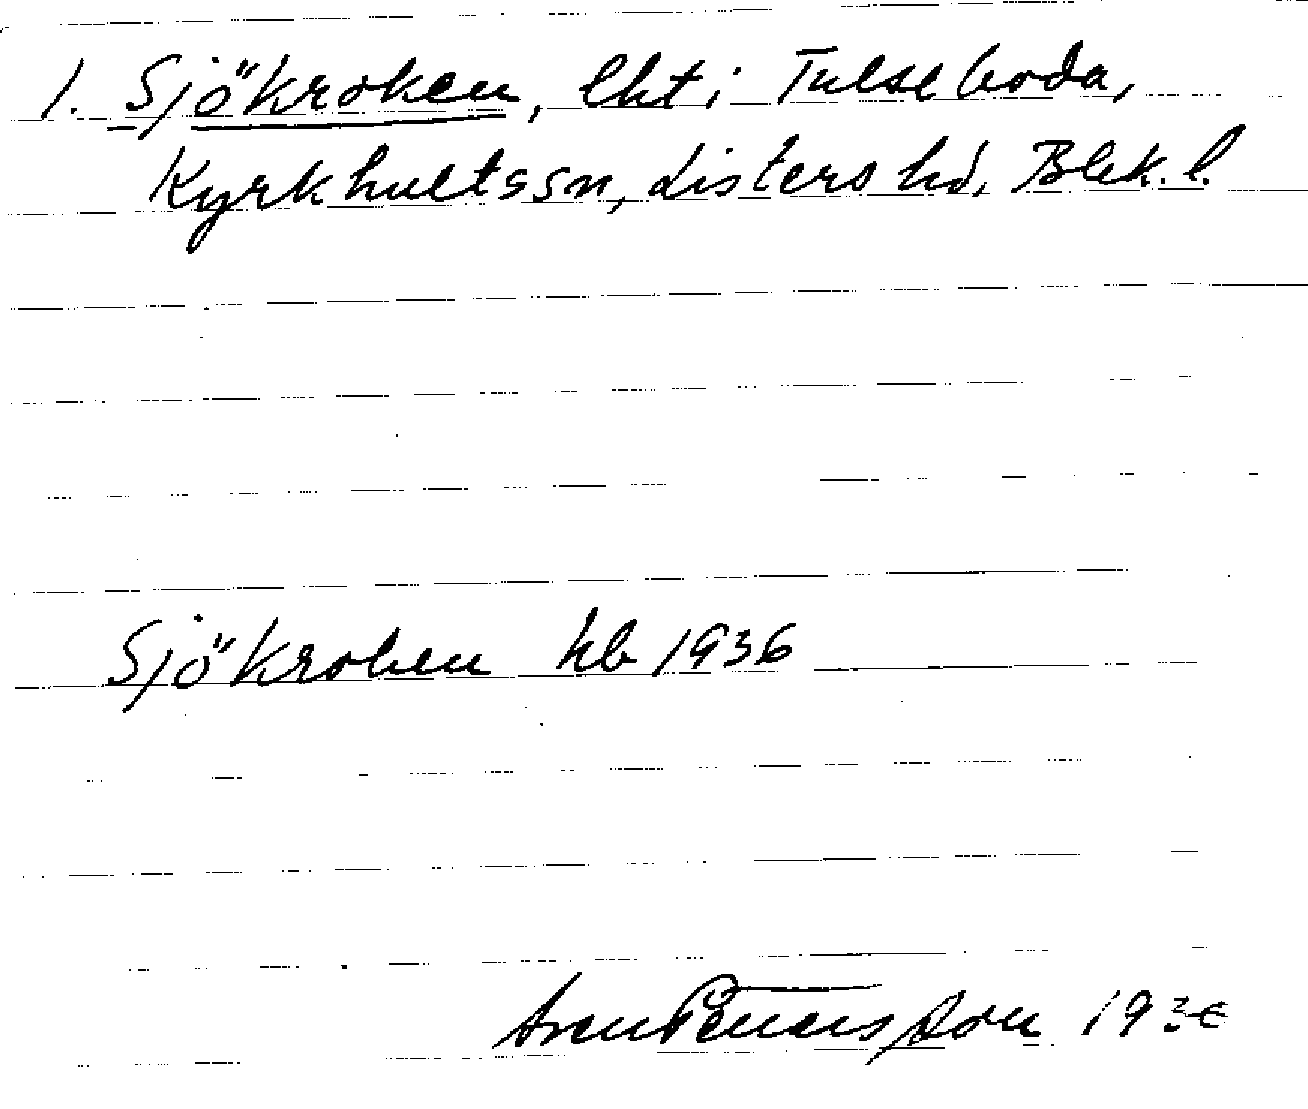 1. Sjökroken, lht i Tulseboda,
Kyrkhults sn, Listers hd, Blek. l.
Sjökroken hb 1936
1936